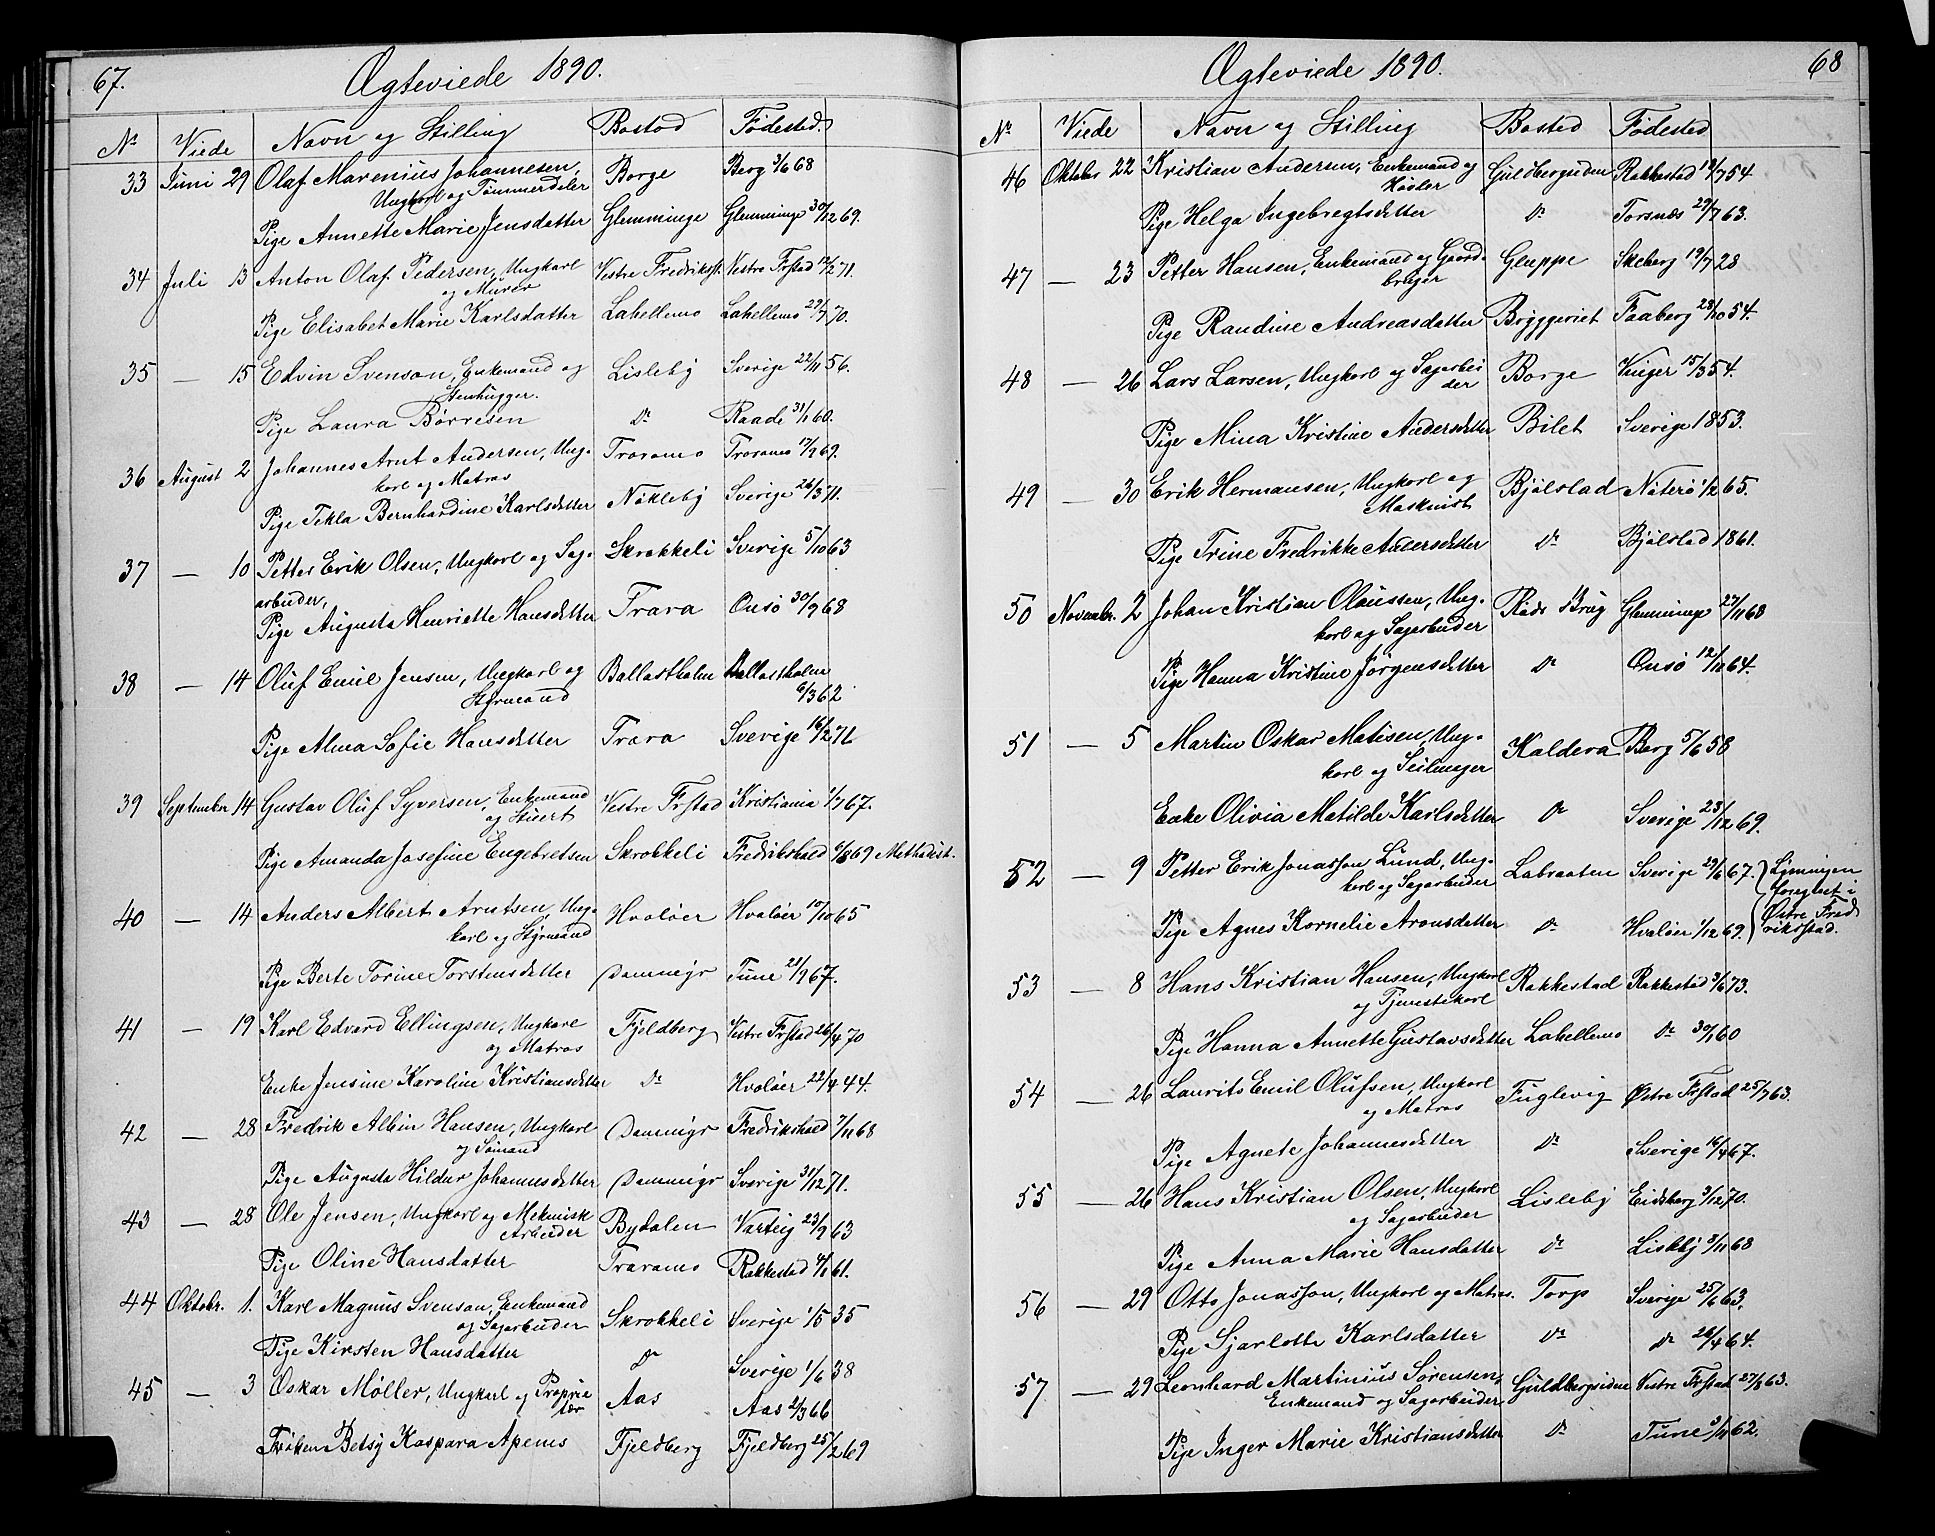 67.
Ægteviede 1890.
Nr Viede Navn og Stilling Bostad Fødested.
33 Juni 29 Olaf Marenius Johannesen, Borge Berg 3/6 68
Ungkarl og Tømmerdeler
Pige Annette Marie Jensdatter Glemminge Glemminge 30/12 69.
34 Juli 13 Anton Olaf Pedersen, Ungkarl Vestre Fredrikst. Vestre Frstad 12/2 71.
og Murer
Pige Elisabet Marie Karlsdatter Lahellemo Lahellemo 29/7 70.
35 — 15 Edvin Svenson, Enkemand og Lisleby Sverige 22/11 56.
Stenhugger.
Pige Laura Børresen Do Raade 31/1 60.
36 August 2 Johannes Arnt Andersen, Ung- Traramo Traramo 17/9 69.
karl og Matros
Pige Tekla Bernhardine Karlsdatter Nökleby Sverige 26/3 71.
37 — 10 Petter Erik Olsen, Ungkarl og Sag- Skrokkeli Sverige 5/10 63
arbeider,
Pige Augusta Henriette Hansdatter Trara Onsö 30/9 68
38 — 14 Oluf Emil Jensen, Ungkarl og Ballastholm Ballastholm
Styrmand 6/3 62
Pige Alma Sofie Hansdatter Trara Sverige 16/2 71
39 September 14 Gustav Oluf Syversen, Enkemand Vestre Frstad Kristiania 1/7 67.
og
Pige Amanda Josefine Engebretsen Skrokkeli Fredrikshald 6/8 69 Methodist.
40 — 14 Anders Albert Arntsen, Ung- Hvaløer Hvaløer 10/10 65
karl og Styrmand
Pige Berte Torine Torstensdatter Dammyr Tune 21/9 67.
41 — 19 Karl Edvard Ellingsen, Ungkarl Fjeldberg Vestre Frstad 26/4 70
og Matros
Enke Jensine Karoline Kristiansdatter Do Hvaløer 22/4 44.
42 — 28 Fredrik Albin Hansen, Ungkarl Dammyr Fredrikshald 7/11 68
og Sömand
Pige Augusta Hildur Johannesdatter Dammyr Sverige 31/12 71.
43 — 28 Ole Jensen, Ungkarl og Mekanisk Bydalen Varteig 23/9 63
Arbeider
Pige Oline Hansdatter Traramo Rakkestad 4/1 61.
44 Oktobr. 1. Karl Magnus Svenson, Enkemand Skrokkeli Sverige 1/5 35
og Sagarbeider
Pige Kirsten Hansdatter Do Sverige 1/6 38
45 — 3 Oskar Møller, Ungkarl og Proprie Aas Aas 2/3 66
tær
Frøken Betsy Kaspara Apenes Fjeldberg Fjeldberg 25/2 69
68
Ægteviede 1890.
Nr Viede Navn og Stilling Bosted Fødested
46 Oktober 22 Kristian Andersen, Enkemand og Guldbergsiden Rakkestad 12/7 54.
Høvler
Pige Helga Ingebregtsdatter Do Torsnæs 29/7 63.
47 — 23 Petter Hansen, Enkemand og Gaard- Gluppe Skeberg 19/7 28
bruger
Pige Randine Andreasdatter Bryggeriet Faaberg 23/10 54.
48 — 26 Lars Larsen, Ungkarl og Sagarbei Borge Vinger 15/3 54.
der
Pige Mina Kristine Andersdatter Bilet Sverige 1853.
49 — 30 Erik Hermansen, Ungkarl og Bjølstad Nøterö 1/2 65.
Maskinist
Pige Trine Fredrikke Andersdatter Do Bjølstad 1861.
50 Novembr. 2 Johan Kristian Olaussen, Ung- Røds Brug Glemminge 27/11 68
karl og Sagarbeider
Pige Hanna Kristine Jørgensdatter Do Onsö 12/12 64.
51 — 5 Martin Oskar Matisen, Ung- Kaldera Berg 5/6 58
karl og Seilmager
Enke Olivia Matilde Karlsdatter Do Sverige 23/12 69.
52 — 9 Petter Erik Jonasson Lund, Ung- Labraaten Sverige 29/6 67. Lysningen
karl og Sagarbeider foregaaet i
Pige Agnes Kornelie Aronsdatter Do Hvaløer 1/12 69. Østre Fred
rikstad.
53 — 8 Hans Kristian Hansen, Ungkarl Rakkestad Rakkestad 3/6 73.
og Tjenestekarl
Pige Hanna Annette Gustavsdatter Lahellemo Do 30/1 60
54 — 26 Laurits Emil Olufsen, Ungkarl Fuglevig Østre Frstad 25/7 63.
og Matros
Pige Agnete Johannesdatter Do Sverige 16/4 67.
55 — 26 Hans Kristian Olsen, Ungkarl Lisleby Eidsberg 3/12 70.
og Sagarbeider
Pige Anna Marie Hansdatter Do Lisleby 3/11 68
56 — 29 Otto Jonasson, Ungkarl og Matros. Torp Sverige 25/6 63.
Pige Sjarlotte Karlsdatter Do Do 26/4 64.
57 — 29 Leonhard Martinius Sørensen, Guldbergsiden Vestre Frstad 27/8 63.
Enkemand og Sagarbeider
Pige Inger Marie Kristiansdatter Do Tune 3/11 62.